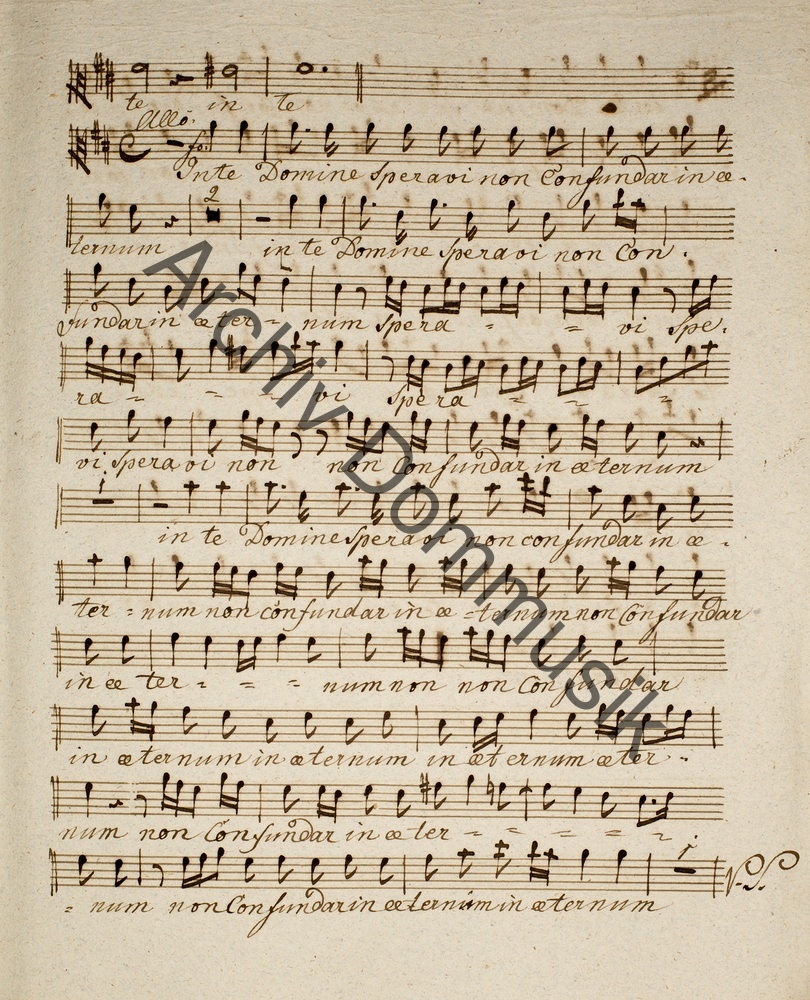 te in te
Allo:
fo:
In te Domine speravi non Confundar in æ-
2
ternum in te Domine speravi non Con-
fundar in æter - num spera - - vi spe-
ra - - - vi spera - - -
vi speravi non non Confundar in æternum
1
in te Domine speravi non confundar in æ-
ter - num non confundar in æ - ternum non Confundar
in æ ter - - - num non non Confundar
in æternum in æternum in æternum æter -
num non Confundar in æ ter - - - - -
1
V.S.
- num non Confundar in æternum in æternum
Archiv Dommusik